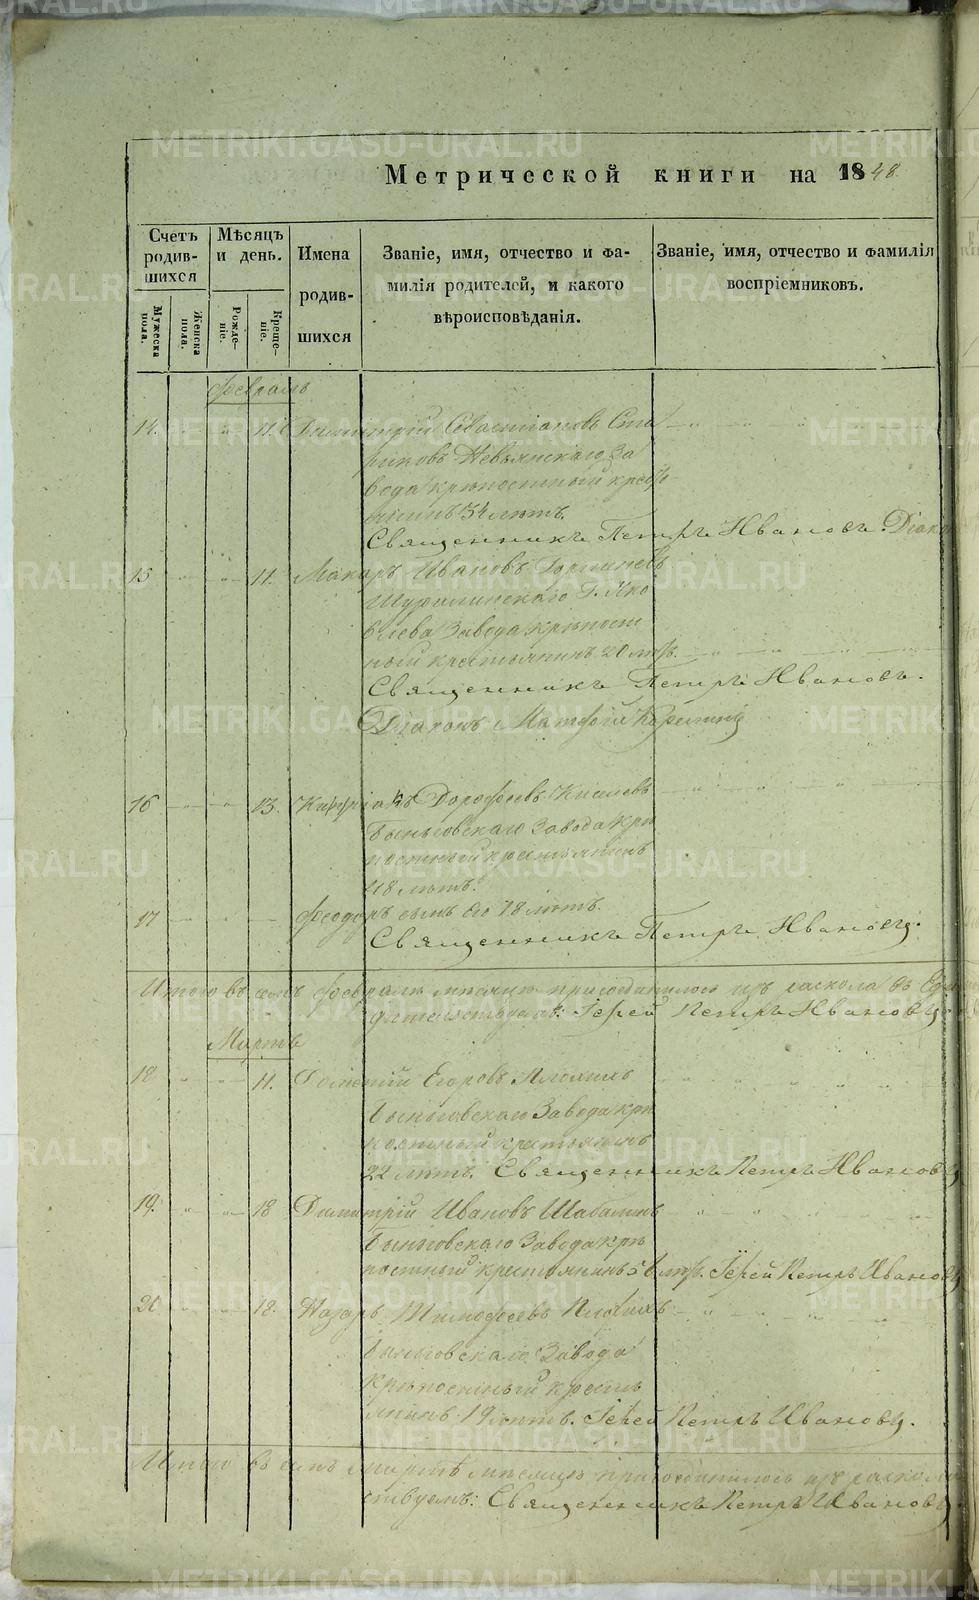 Метрической книги на 1848.
Счетъ родив-шихся
Мѣсяцъ и день.
Имена родив-шихся
Званіе, имя, отчество и фа-
милія родителей, и какого
вѣроисповѣданія.
Званіе, имя, отчество и фамилія
воспріемниковъ.
Мужеска пола.
Женска пола.
Рожде-ніе.
Креще-ніе.
Февраль
14. 11. Димитрій Севастіановъ Ста
риковъ Невьянскаго За
вода крѣпостный кресть
янинъ 34 лѣтъ.
Священникъ Петръ Ивановъ. Діакон
15 11. Макаръ Ивановъ
Шуралинскаго Г. Яко
влева Завода крѣпост
ный крестьянинъ 20 лѣтъ.
Священникъ Петръ Ивановъ.
Діаконъ Матфій
16 13. Дорофеевъ Киселевъ
Быньговскаго Завода крѣ
постный крестьянинъ
48 лѣтъ.
17 Феодоръ сынъ его 18 лѣтъ.
Священникъ Петръ Ивановъ.
Итого въ семъ Февралѣ мѣсяцѣ присоединилось изъ раскола въ
Іерей Петръ Ивановъ
Мартъ
18 11. Егоровъ
Быньговскаго Завода крѣ
постный крестьянинъ
22 лѣтъ. Священникъ Петръ Ивановъ
19. 18 Димитрій Ивановъ Шабалинъ
Быньговскаго Завода крѣ
постный крестьянинъ лѣтъ. Іерей Петръ Ивановъ
20 18. Назаръ Тимофеевъ
Быньговскаго Завода
крѣпостный кресть
янинъ 19 лѣтъ. Іерей Петръ Ивановъ.
Итого въ семъ Мартѣ мѣсяцѣ присоединилось изъ раскола
ствуемъ: Священникъ Петръ Ивановъ
METRIKI.GASO-URAL.RU